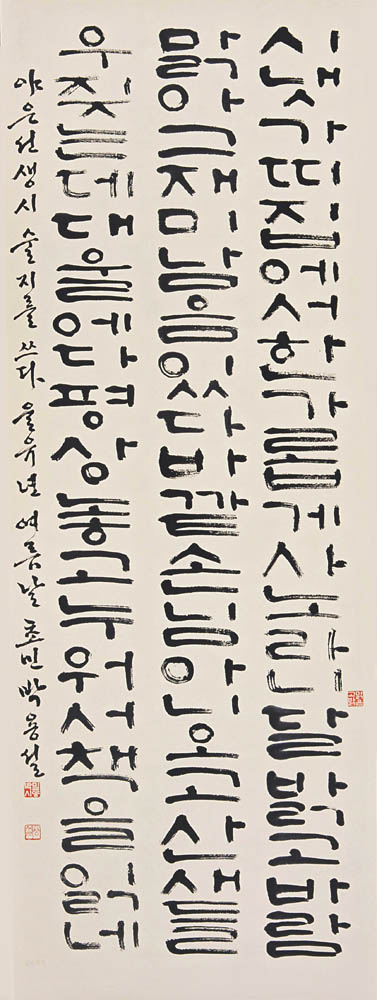 시냇가띠집에서한가롭게사노라니달밝고바람
맑아그재미남음있다바깥손님안오고산새들
우짖는데대울에다평상놓고누워서책을읽네
야은선생시 술지를 쓰다 을유년 여름날 초민 박용설